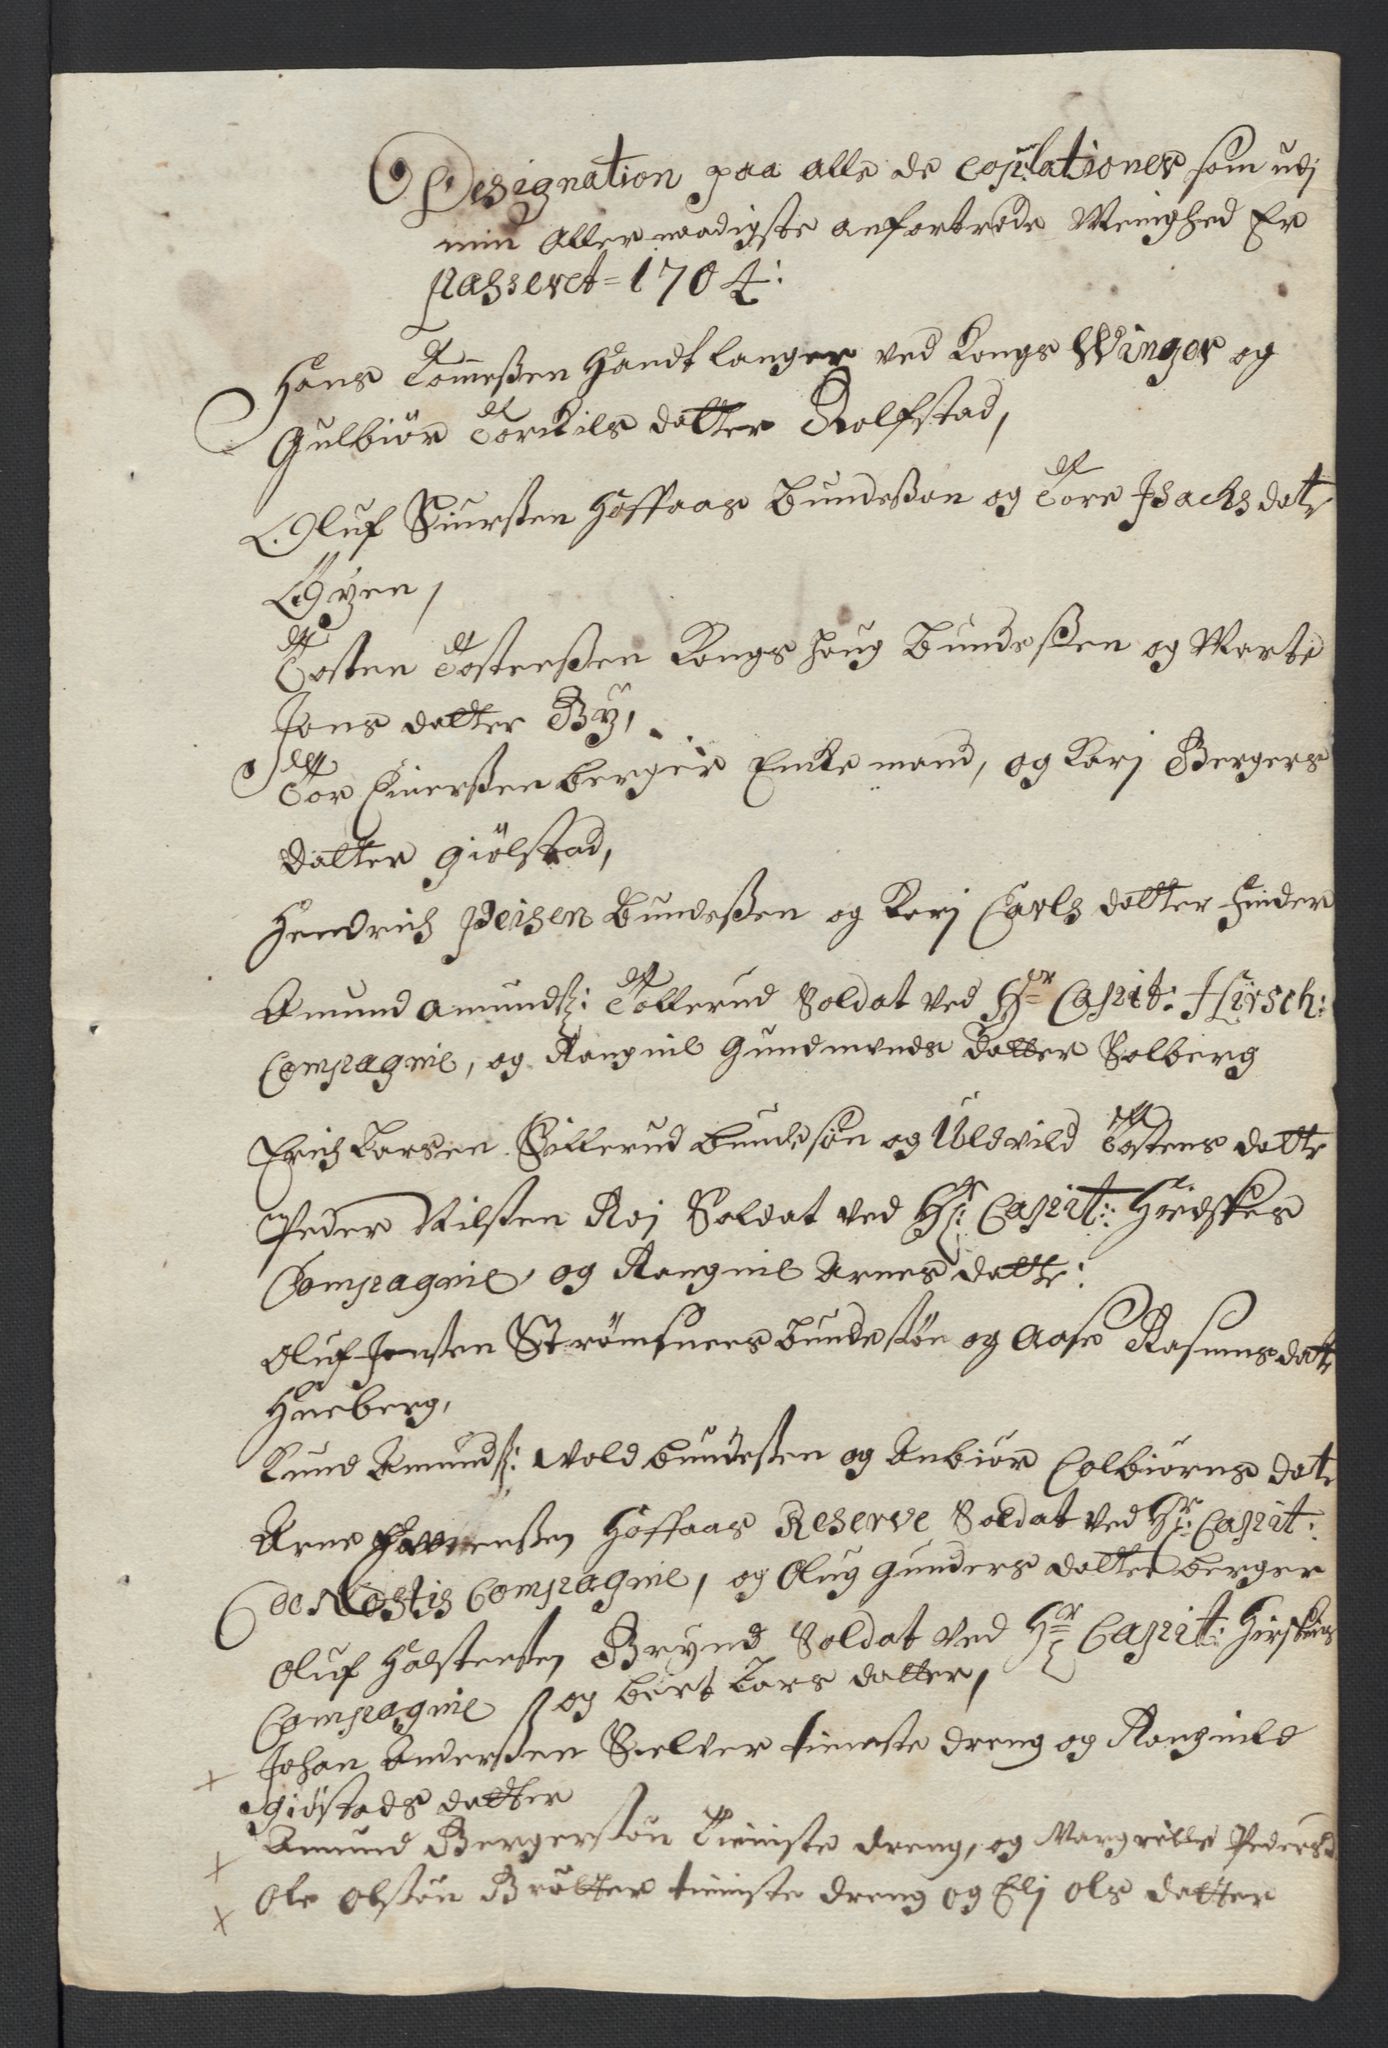 Designation paa alle de Copulationer som udj
min allernaadigste anfortrode Meinghed Er
passeret = 1704:
Hans Tomeßen Handtlanger ved Kongs Winger og
Gulbiør Torkils datter Rolfstad,
Oluf Siurßen Hoffaas Bundeßøn og Tore Isachs datr
Øyen,
Tosten Tostenßen Kongshoug Bundeßen og Marte
Jons datter By,
Tor Einerßen berger Enke mand, og Karj Bergers
datter Giølstad,
Hendrich Bundeßen og Karj Carls datter
Amund Amundß: Tollerud Soldat ved Hr Capit: Hirsch:
Compagnie, og Rangnil Gundmunds datter Solberg
Erich Larsen Sillerud bundesøn og Uldvild Tostens datte
Peder Nilsten Roj Soldat ved Hr: Capit: Hirdskes
Compagnie, og Rangnil Arnes datte:
Oluf Jensten Strømsnees bundesøn og Aase Rasmus datte
Hueberg,
Knud Amundß: Wold bundeßen og Anbiør Colbiørns dat
Arne Hoffaas Reserve Soldat ved Hr: Capit:
de Nostis Compagnie, og Oluy Gunders datter berger
Oluf Halstensten Brynd Soldat ved Hr Capit: Hirskens
Compagnie og bert Lars datter,
+ Johan Anderßen Sielver tieneste dreng og Rangnild
Giøstads datter
+ Amund Bergersøn Tieniste dreng, og Margrette Pedersd
+ Ole Olsøn Brøtter tieniste dreng og Elj Ols datter